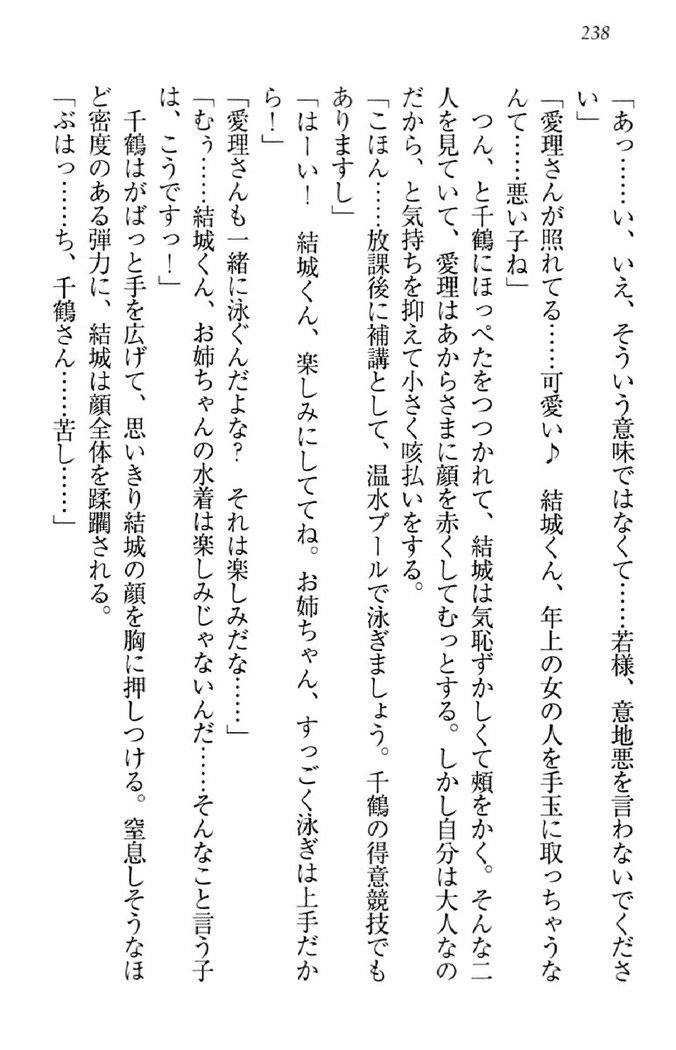 238
「あっ……い、いえ、そういう意味ではなくて……若様、意地悪を言わないでくださ
い」
「愛理さんが照れてる……可愛い♪　結城くん、年上の女の人を手玉に取っちゃうな
んて……悪い子ね」
　つん、と千鶴にほっぺたをつつかれて、結城は気恥ずかしくて頬をかく。そんな二
人を見ていて、愛理はあからさまに顔を赤くしてむっとする。しかし自分は大人なの
だから、と気持ちを抑えて小さく咳払いをする。
「こほん……放課後に補講として、温水プールで泳ぎましょう。千鶴の得意競技でも
ありますし」
「はーい！　結城くん、楽しみにしててね。お姉ちゃん、すっごく泳ぎは上手だか
ら！」
「愛理さんも一緒に泳ぐんだよな？　それは楽しみだな……」
「むぅ……結城くん、お姉ちゃんの水着は楽しみじゃないんだ……そんなこと言う子
は、こうですっ！」
　千鶴はがばっと手を広げて、思いきり結城の顔を胸に押しつける。窒息しそうなほ
ど密度のある弾力に、結城は顔全体を蹂躙される。
「ぶはっ……ち、千鶴さん……苦し……」